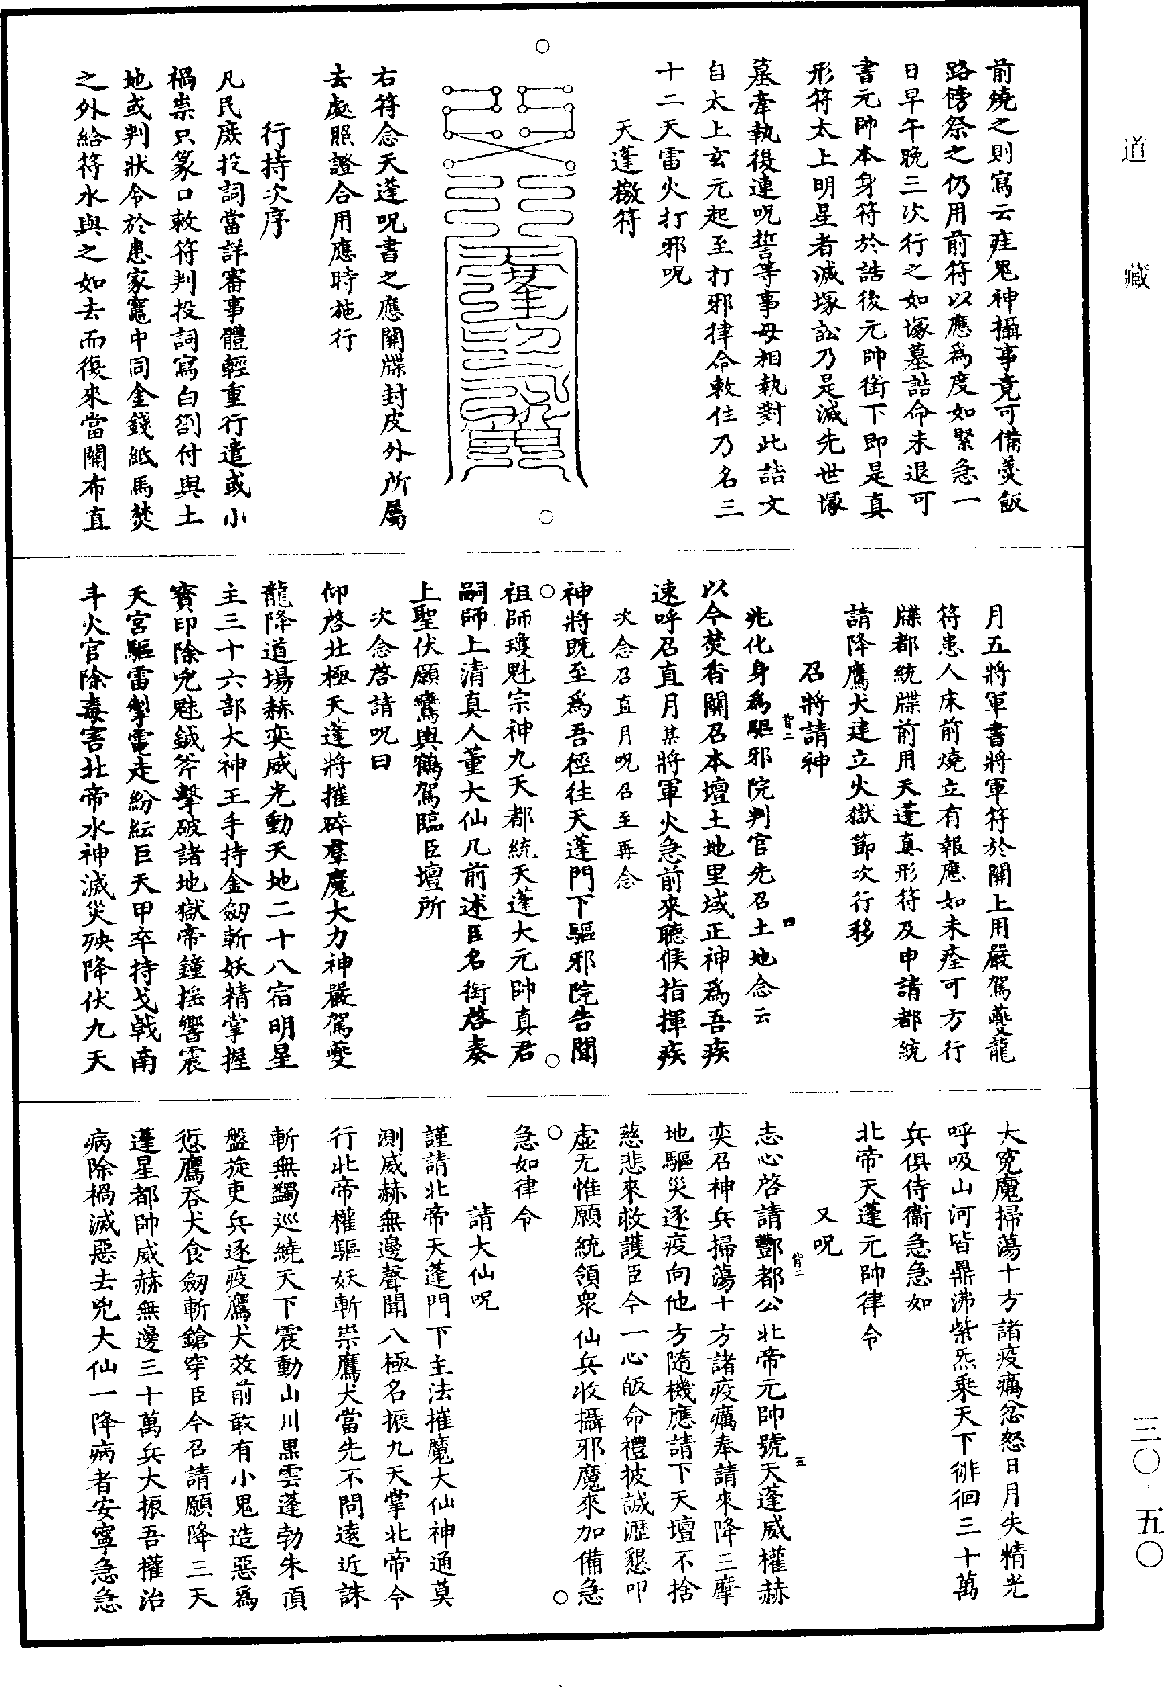 道藏
前燒之則寫云疰鬼神攝事竟可備羹飯
路傍祭之仍用前符以應爲度如緊急一
日早午晚三次行之如塚墓誥命未退可
書元帥本身符於誥後元帥銜下即是真
形符太上明星者滅塚訟乃是滅先世塚
墓牽執後連呪誓等事毋相執對此誥文
自太上玄元起至打邪律命敕住乃名三
十二天雷火打邪呪
天蓬檄符
右符念天蓬呪書之應關牒封皮外所屬
去處照證合用應時施行
行持次序
凡民庶投詞當詳審事體輕重行遣或小
禍祟只篆口敕符判投詞寫白劄付與土
地或判狀令於患家竈中同金錢紙馬焚
之外給符水與之如去而復來當關布直
月五將軍書將軍符於關上用嚴駕夔龍
符患人床前燒立有報應如未痊可方行
牒都統牒前用天蓬真形符及申請都統
請降鷹犬建立火獄節次行移
召將請神
先化身爲驅邪院判官先召土地念云
以今焚香關召本壇土地里域正神爲吾疾
速呼召直月某將軍火急前來聽候指揮疾
次念召直月呪召至再念
神將既至爲吾徑往天蓬門下驅邪院告聞
祖師瓊魁宗神九天都統天蓬大元帥真君
嗣師上清真人董大仙几前述臣名銜啓奏
上聖伏願鸞輿鶴駕臨臣壇所
次念啓請呪曰
仰啓北極天蓬將摧碎羣魔大力神嚴駕夔
龍降道場赫奕威光動天地二十八宿明星
主三十六部大神王手持金劒斬妖精掌握
寶印除兇魅鉞斧擊破諸地獄帝鐘搖響震
天宮驅雷掣電走紛紜巨天甲卒持戈戟南
斗火官除毒害北帝水神滅災殃降伏九天
大寃魔掃蕩十方諸疫癘忿怒日月失精光
呼吸山河皆鼎沸紫炁乘天下徘徊三十萬
兵俱侍衞急急如
北帝天蓬元帥律令
又呪
志心啓請酆都公北帝元帥號天蓬威權赫
奕召神兵掃蕩十方諸疫癘奉請來降三摩
地驅災逐疫向他方隨機應請下天壇不捨
慈悲來救護臣今一心皈命禮披誠瀝懇叩
虛无惟願統領衆仙兵收攝邪魔來加備急
急如律令
請大仙呪
謹請北帝天蓬門下主法摧魔大仙神通莫
測威赫無邊聲聞八極名振九天掌北帝令
行北帝權驅妖斬祟鷹犬當先不問遠近誅
斬無蠲巡繞天下震動山川黑雲蓬勃朱頂
盤旋吏兵逐疫鷹犬效前敢有小鬼造惡爲
愆鷹吞犬食劒斬鎗穿臣今召請願降三天
蓬星都帥威赫無邊三十萬兵大振吾權治
病除禍滅惡去兇大仙一降病者安寧急急
三〇·五〇